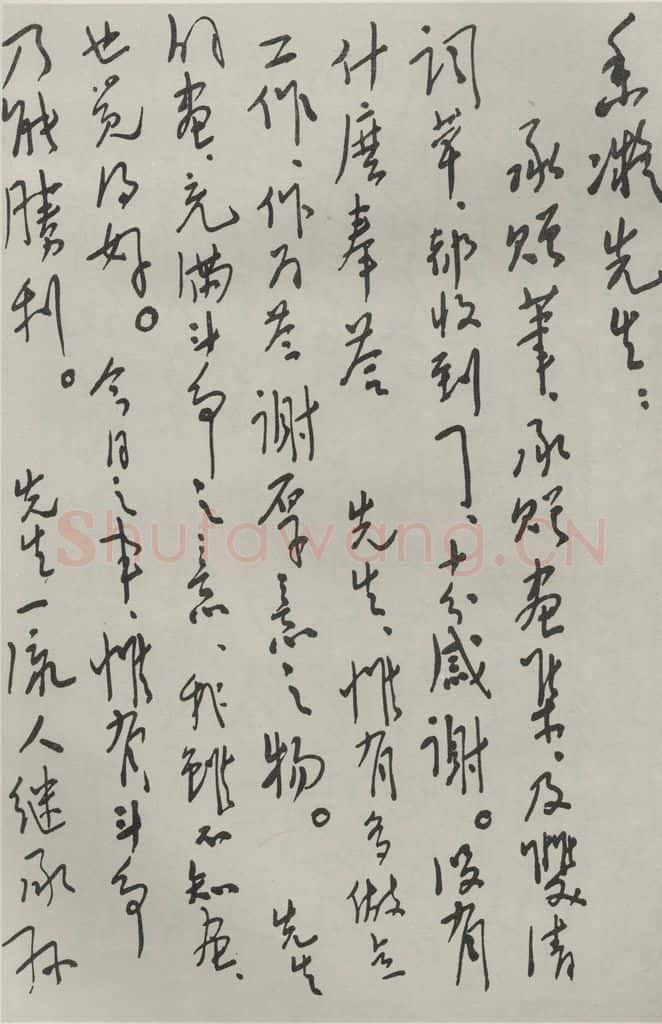 香凝先生：
承赐笔，承赐画集，及双清
词草，都收到了，十分感谢。没有
什麽奉答 先生，惟有多做点
工作，作为答谢厚意之物。 先生
的画，充满斗争之意，我虽不知画，
也觉得好。 今日之事，惟有斗争
乃能胜利。 先生一流人继承孙
Shufawang.CN